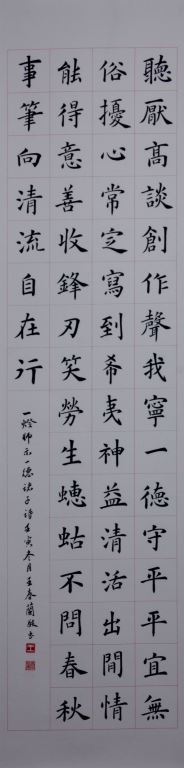 聽厭髙談創作聲我寧一德守平平宜無
俗擾心常定寫到希夷神益清活出閒情
能得意善收鋒刃笑勞生蟪蛄不問春秋
事筆向清流自在行
一燈師示一德諸子詩壬寅冬月王春蘭敬書